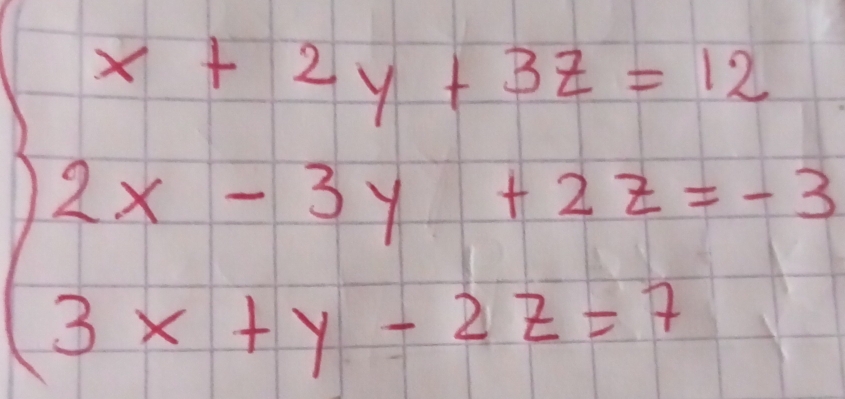 x + 2y + 3z = 12
2x - 3y + 2z = - 3
3x + y - 2z = 7